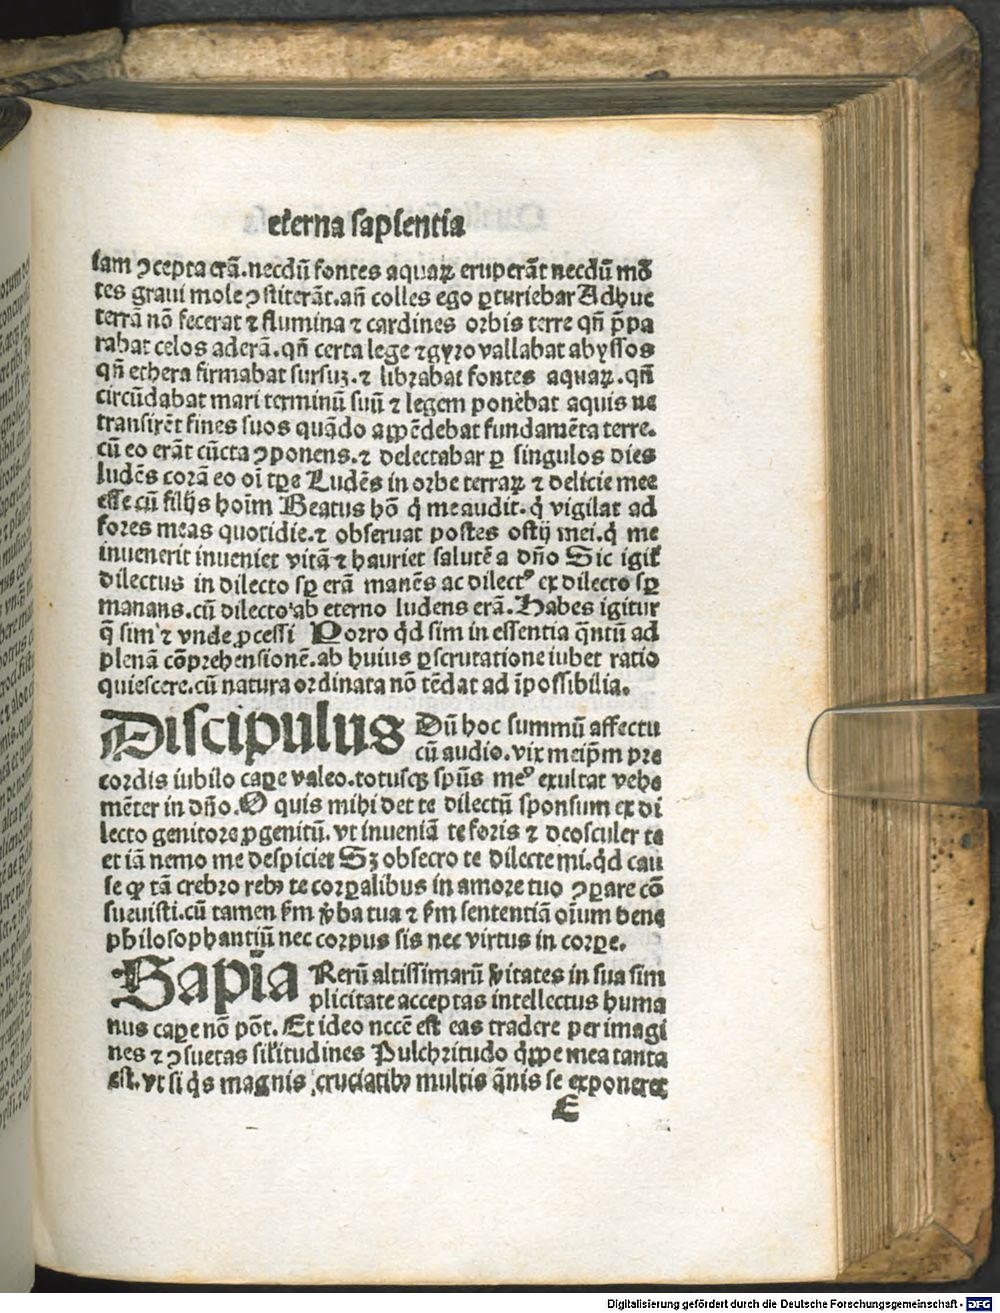 eterna sapientia
iam ↄcepta erā.necdū fontes aquaꝝ eruperāt necdū mō
tes graui mole ↄstiterāt.añ colles ego ꝑturiebar Adhuc
terrā nō fecerat ⁊ flumina ⁊ cardines orbis terre qñ p̄pa
rabat celos aderā.qñ certa lege ⁊gyro vallabat abyssos
qñ ethera firmabat sursuꝫ.⁊ librabat fontes aquaꝝ.qñ
circūdabat mari terminū suū ⁊ legem ponebat aquis ne
transirēt fines suos quādo appēdebat fundamēta terre.
cū eo erāt cūcta ↄponens.⁊ delectabar ꝑ singulos dies
ludēs corā eo oī tꝑe Ludēs in orbe terraꝝ ⁊ delicie mee
esse cū filijs hoīm Beatus hō q̇ me audit.q̇ vigilat ad
fores meas quotidie.⁊ obseruat postes ostij mei.q̇ me
inuenerit inueniet vitā ⁊ hauriet salutē a dño Sic igit᷑
dilectus in dilecto sꝑ erā manēs ac dilectꝰ ex dilecto sꝑ
manans.cū dilecto ab eterno ludens erā.Habes igitur
q̄ sim ⁊ vnde ꝓcessi Porro q̇d sim in essentia q̄ntū ad
plenā cōprehensionē.ab huius ꝑscrutatione iubet ratio
quiescere.cū natura ordinata nō tēdat ad īpossibilia.
Discipulus Dū hoc summū affectu
cū audio.vix meip̄m pre
cordis iubilo caꝑe valeo.totusqꝫ spūs meꝰ exultat vehe
mēter in dño.O quis mihi det te dilectū sponsum ex di
lecto genitore ꝓgenitū.vt inueniā te foris ⁊ deosculer te
et iā nemo me despiciet Sꝫ obsecro te dilecte mi.q̇d cau
se ꝙ tā crebro rebꝫ te corꝑalibus in amore tuo ↄꝑare cō
sueuisti.cū tamen ẜm v̄ba tua ⁊ ẜm sententiā oīum bene
philosophantiū nec corpus sis nec virtus in corꝑe.
Sapīa Rerū altissimarū v̄itates in sua sim
plicitate acceptas intellectus huma
nus caꝑe nō pōt. Et ideo nccē est eas tradere per imagi
nes ⁊ ↄsuetas sil᷑itudines Pulchritudo q̇ppe mea tanta
est.vt si q̇s magnis cruciatibꝫ multis ānis se exponeret
E
Digitalisierung gefördert durch die Deutsche Forschungsgemeinschaft - DFG